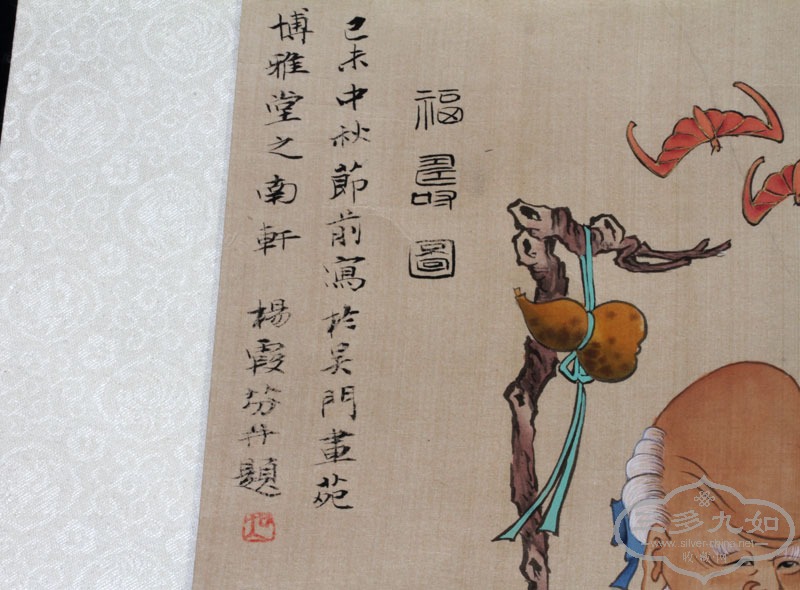 福壽圖
己未中秋節前寫於吴門畫苑
博雅堂之南軒 楊霞芬并題
三多九如
www.silver-china.net
收藏网